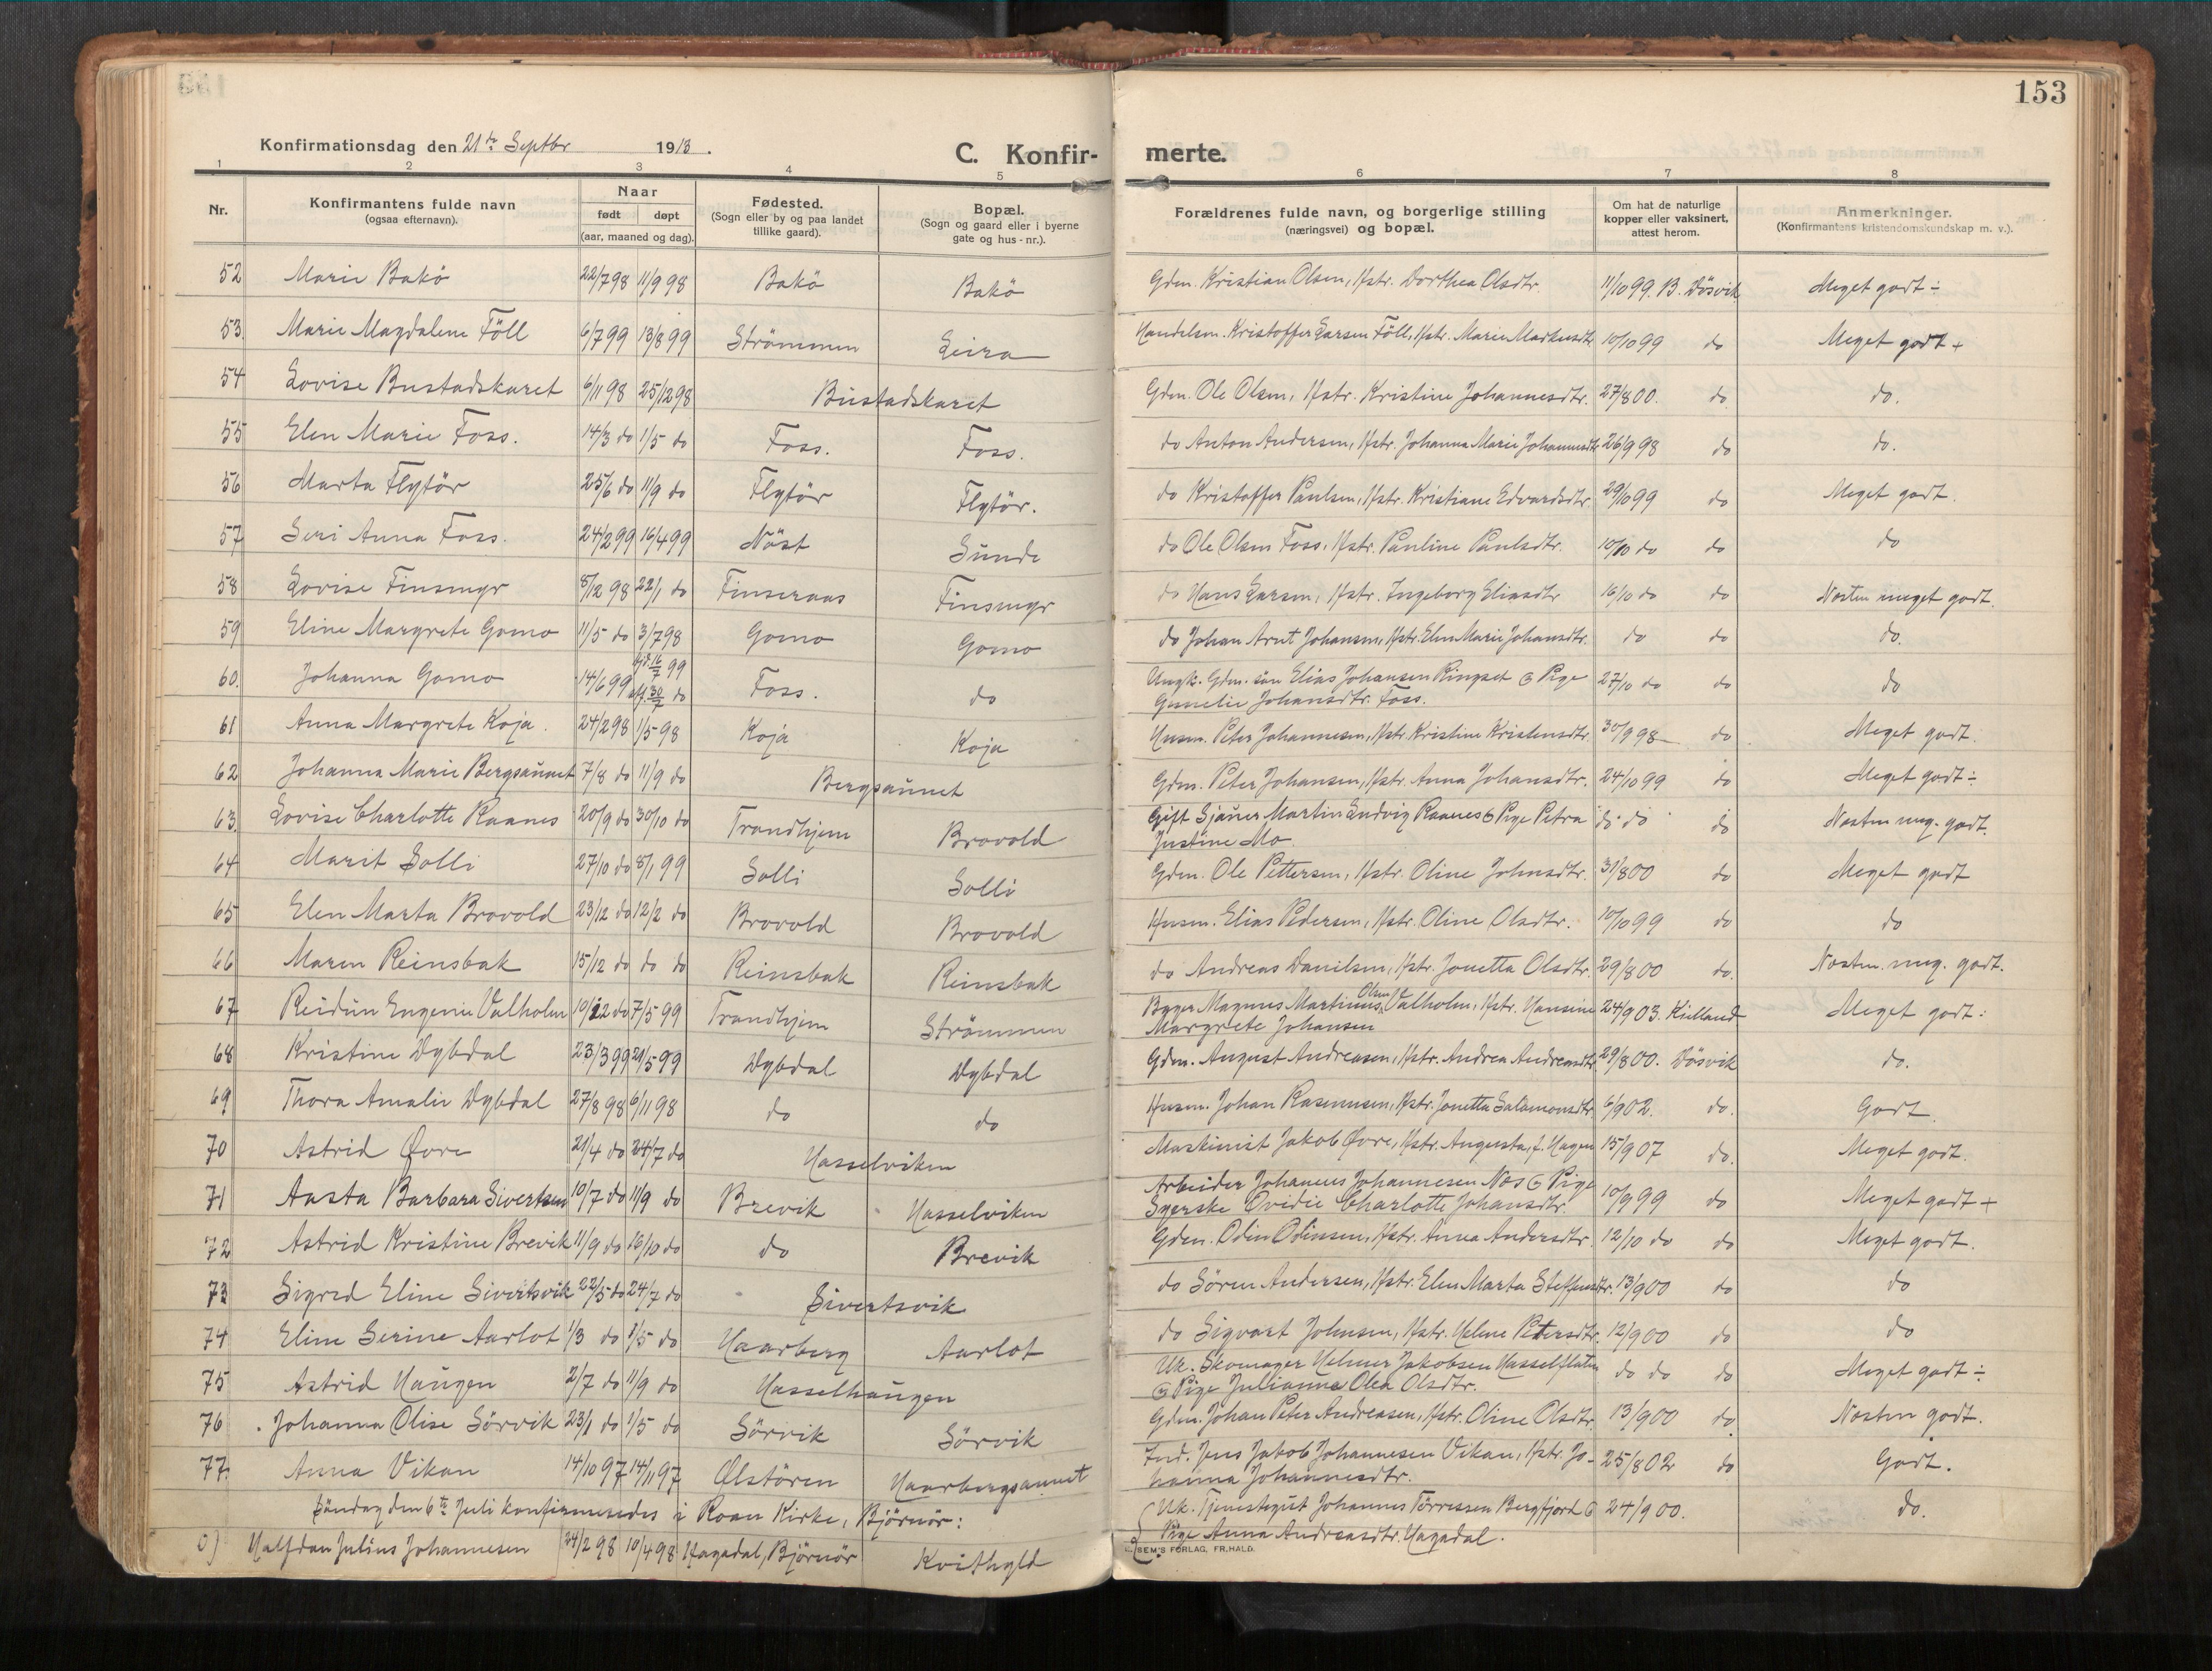 153
Konfirmationsdag den 21de Septbr 1913.
C. Konfir- merte.
1 2 3 4 5 6 7 8
Nr.
Konfirmantens fulde navn
(ogsaa efternavn).
Naar
født døpt
(aar, maaned og dag).
Fødested.
(Sogn eller by og paa landet
tillike gaard).
Bopæl.
(Sogn og gaard eller i byerne
gate og hus-nr.).
Forældrenes fulde navn, og borgerlige stilling
(næringsvei) og bopæl.
Om hat de naturlige
kopper eller vaksinert,
attest herom.
Anmerkninger.
(Konfirmantens kristendomskundskap m. v.).
52 Marie Bakö 22/7 98 11/9 98 Bakö Bakö Gdm. Kristian Olsen, Hstr. Dorthea Olsdtr. 11/10 99. B. Dösvik Meget godt ÷
53. Marie Magdalene Föll 6/7 99 13/8 99 Strömmen Leira Handelsm. Kristoffer Larsen Föll, Hstr. Marie Markusdtr. 10/10 99 do Meget godt +
54 Lovise Bustadskaret 6/11 98 25/12 98 Bustadskaret Gdm. Ole Olsen, Hstr. Kristine Johannesdtr. 27/8 00. do do.
55 Elen Marie Foss. 14/3 do 1/5 do Foss. Foss. do Anton Andersen, Hstr. Johanna Marie Johannesdtr 26/9 98 do do.
56 Marta Flytör 25/6 do 11/9 do Flytör Flytör. do Kristoffer Paulsen, Hstr. Kristiane Edvardsdtr. 29/10 99 do Meget godt.
57 Seri Anna Foss. 24/2 99 16/4 99 Nöst Sunde do Ole Olsen Foss, Hstr. Pauline Paulsdtr. 10/10 do do do
58 Lovise Finsmyr 8/12 98 22/1 do Finseraas Finsmyr do Hans Larsen, Hstr. Ingeborg Eliasdtr 16/10 do do Næsten meget godt.
59 Eline Margrete Gomo 11/5 do 3/7 98 Gomo Gomo do Johan Arnt Johansen, Hstr. Elen Marie Johansdtr. do do do.
60. Johanna Gomo 14/6 99 hjd. 16/7 99 Foss. do Ungk. Gdm. søn Elias Johansen Ringset & Pige 27/10 do do do
aff. 30/7 do Gunelie Johansdtr. Foss.
61 Anna Margrete Koja. 24/2 98 1/5 98 Koja Koja Husm. Peter Johannesen, Hstr. Kristine Kristensdtr. 30/9 98 do Meget godt.
62 Johanna Marie Bergsaunet 7/8 do 11/9 do Bergsaunet Gdm. Peter Johansen, Hstr. Anna Johansdtr. 24/10 99 do Meget godt ÷
63. Lovise Charlotte Raanes 20/9 do 30/10 do Trondhjem Brovold Gift Sjauer Martin Ludvig Raanes & Pige Petra do do do Næsten meg. godt.
Justine Mo.
64 Marit Solli 27/10 do 8/1 99 Solli Solli Gdm. Ole Pettersen, Hstr. Oline Johnsdtr. 31/8 00 do Meget godt
65 Elen Marta Brovold 23/12 do 12/2 do Brovold Brovold Husm. Elias Pedersen, Hstr. Oline Olsdtr. 10/10 99 do do
66 Maren Reinsbak 15/12 do do do Reinsbak Reinsbak do Andreas Danilsen, Hstr. Jonetta Olsdtr. 29/8 00 do. Næsten. meg. godt.
67 Reidun Eugenie Valholm 10/12 do 7/5 99 Trondhjem Strömmen Byger Magnus Martinus Olsen Valholm, Hstr. Hansine 24/9 03. Kielland Meget godt.
Margrete Johansen
68 Kristine Dybdal 23/3 99 21/5 99 Dybdal Dybdal Gdm. August Andreasen, Hstr. Andrea Andreasdtr. 29/8 00. Dösvik do.
69 Thora Amalie Dybdal 27/8 98 6/11 98 do do Husm. Johan Rasmusen, Hstr. Jonetta Salamonsdtr. 6/9 02. do. Godt.
70 Astrid Øvre 21/4 do 24/7 do Hasselviken Maskinist Jakob Øvre, Hstr. Augusta, f. Hagen 15/9 07 do. Meget godt.
71 Aasta Barbara Sivertsen 10/7 do 11/9 do Brevik Hasselviken Arbeider Johannes Johannesen Næs & Pige 10/9 99 do Meget godt +
Syerske Ovidie Charlotte Johansdtr.
72 Astrid Kristine Brevik 11/9 do 16/10 do do Brevik Gdm. Odin Odinsen, Hstr. Anna Andersdtr. 12/10 do do Meget godt.
73 Sigrid Eline Sivertsvik 22/5 do 24/7 do Sivertsvik do Sören Andersen, Hstr. Elen Marta Steffensdtr. 13/9 00 do do
74 Eline Serine Aarlot 1/3 do 1/5 do Haarberg Aarlot do Sigvart Johnsen, Hstr. Helene Petersdtr. 12/9 00 do do
75 Astrid Haugen 2/7 do 11/9 do Hasselhaugen Uk. Skomager Helmer Jakobsen Hasselflaten do do do Meget godt ÷
& Pige Julianna Olea Olsdtr.
76 Johanna Olise Sörvik 23/1 do 1/5 do Sörvik Sörvik Gdm. Johan Peter Andreasen, Hstr. Oline Olsdtr. 13/9 00 do. Næsten godt.
77. Anna Vikan 14/10 97 14/11 97 Ølstören Haarbergsaunet Ind. Jens Jakob Johannesen Vikan, Hstr. Jo- 25/8 02 do Godt.
hanna Johannesdtr.
Söndag den 6te Juli konfirmeredes i Roan Kirke, Björnör:
0) Halfdan Julius Johannesen 24/2 98 10/4 98 Hagadal, Björnör Kvithyld Uk. Tjenestegut Johannes Törrissen Bergfjord & 24/9 00. do.
Pige Anna Andreasdtr. Hagadal.
SEM'S FORLAG, FR.HALD.